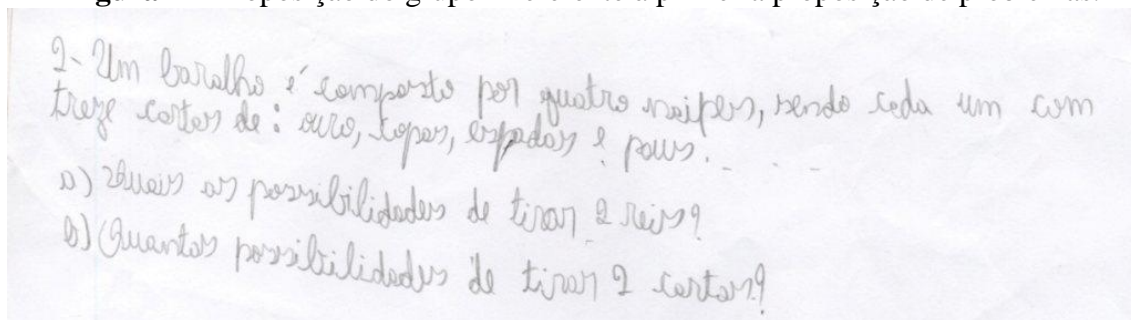 2- Um baralho é composto por quatro naipes, sendo cada um com
treze cartas de: ouro, copas, espadas e paus.
a) Quais as possibilidades de tirar 2 reis?
b) Quantas possibilidades de tirar 2 cartas?